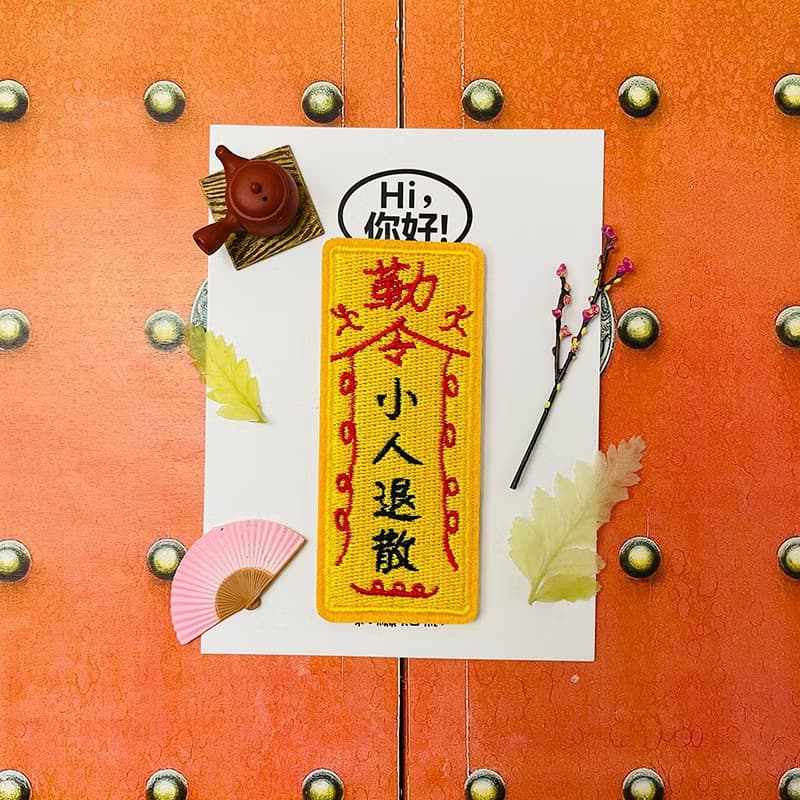 Hi，
你好!
勅
令
小
人
退
散